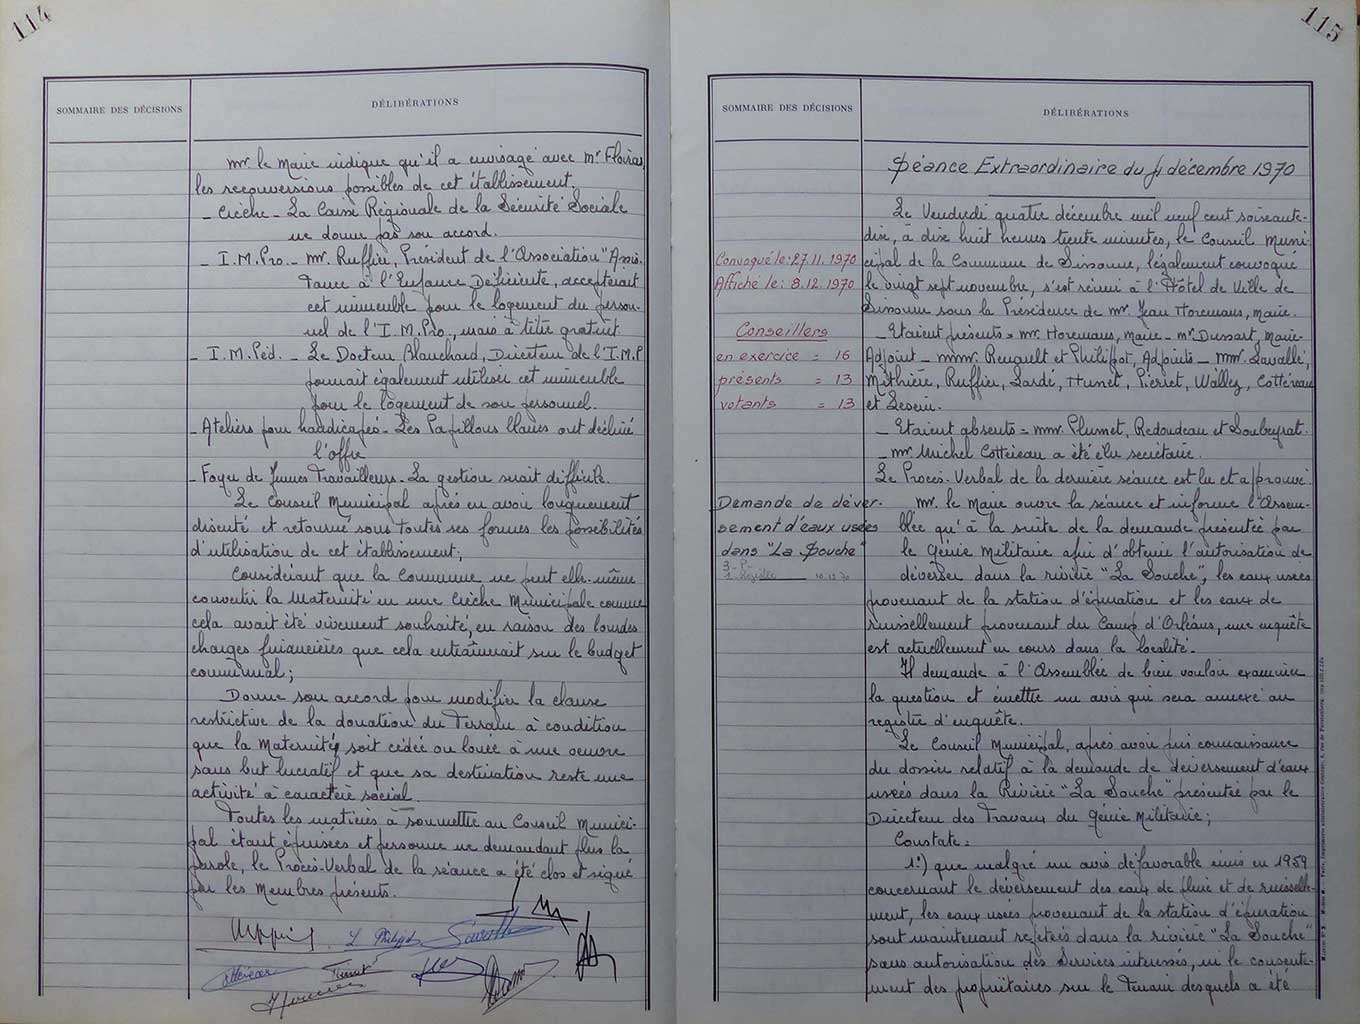 114
SOMMAIRE DES DÉCISIONS
DÉLIBÉRATIONS
Mr. le Maire indique qu'il a envisagé avec Mr
les reconversions possibles de cet établissement.
- Crèche - La Caisse Régionale de la Sécurité Sociale
ne donne pas son accord.
- I.M.Pro - Mr. Ruffier, Président de l'Association "Assis-
tance à l'Enfance Déficiente, accepterait
cet immeuble pour le logement du person-
nel de l'I.M.Pro, mais à titre gratuit
- I.M.Péd. - Le Docteur Blanchard, Directeur de l'I.M.P
pourrait également utiliser cet immeuble
pour le logement de son personnel.
- Ateliers pour handicapés - Les Papillons blancs ont décliné
l'offre
- Foyer de Jeunes Travailleurs - La gestion serait difficile.
Le Conseil Municipal après en avoir longuement
discuté et retourné sous toutes ses formes les possibilités
d'utilisation de cet établissement;
Considérant que la Commune ne peut elle-même
convertir la Maternité en une Crèche Municipale comme
cela avait été vivement souhaité, en raison des lourdes
charges financières que cela entraînerait sur le budget
communal;
Donne son accord pour modifier la clause
restrictive de la donation du Terrain à condition
que la Maternité soit cédée ou louée à une oeuvre
sans but lucratif et que sa destination reste une
activité à caractère social.
Toutes les matières à soumettre au Conseil Munici-
pal étant épuisées et personne ne demandant plus la
parole, le Procès-Verbal de la séance a été clos et signé
par les Membres présents.
115
SOMMAIRE DES DÉCISIONS
DÉLIBÉRATIONS
Séance Extraordinaire du 4 décembre 1970
Le Vendredi quatre décembre mil neuf cent soixante-
dix, à dix huit heures trente minutes, le Conseil Muni-
Convoqué le: 27.11.1970
cipal de la Commune de Sissonne, légalement convoqué
Affiché le: 8.12.1970
le vingt sept novembre, s'est réuni à l'Hôtel de Ville de
Sissonne sous la Présidence de Mr. Jean Horemans, Maire.
Conseillers
- Etaient présents = Mr. Horemans, Maire - Mr. Dussart, Maire-
en exercice = 16
Adjoint - MMr. Renault et Philippot, Adjoints - MMr. Lavallé,
présents = 13
Mithière, Ruffier, Lardé, Hunet, Pierret, Wallez, Cottereau
votants = 13
et Leseur.
- Etaient absents = MMr. Plumet, Redoudeau et Soubeyrat.
- Mr. Michel Cottereau a été élu secrétaire.
Le Procès-Verbal de la dernière séance est lu et approuvé
Demande de déver-
sement d'eaux usées
dans "La Souche"
Mr. le Maire ouvre la séance et informe l'Assem-
blée qu'à la suite de la demande présentée par
le Génie Militaire afin d'obtenir l'autorisation de
déverser dans la rivière "La Souche", les eaux usées
provenant de la station d'épuration et les eaux de
ruissellement provenant du Camp d'Orléans, une enquête
est actuellement en cours dans la localité.
Il demande à l'Assemblée de bien vouloir examiner
la question et émettre un avis qui sera annexé au
registre d'enquête.
Le Conseil Municipal, après avoir pris connaissance
du dossier relatif à la demande de déversement d'eaux
usées dans la Rivière "La Souche" présentée par le
Directeur des Travaux du Génie Militaire;
Constate =
1°) que malgré un avis défavorable émis en 1959
concernant le déversement des eaux de pluie et de ruisselle-
ment, les eaux usées provenant de la station d'épuration
sont maintenant rejetées dans la rivière "La Souche"
sans autorisation des Services intéressés, ni le consente-
ment des propriétaires sur le Terrain desquels a été